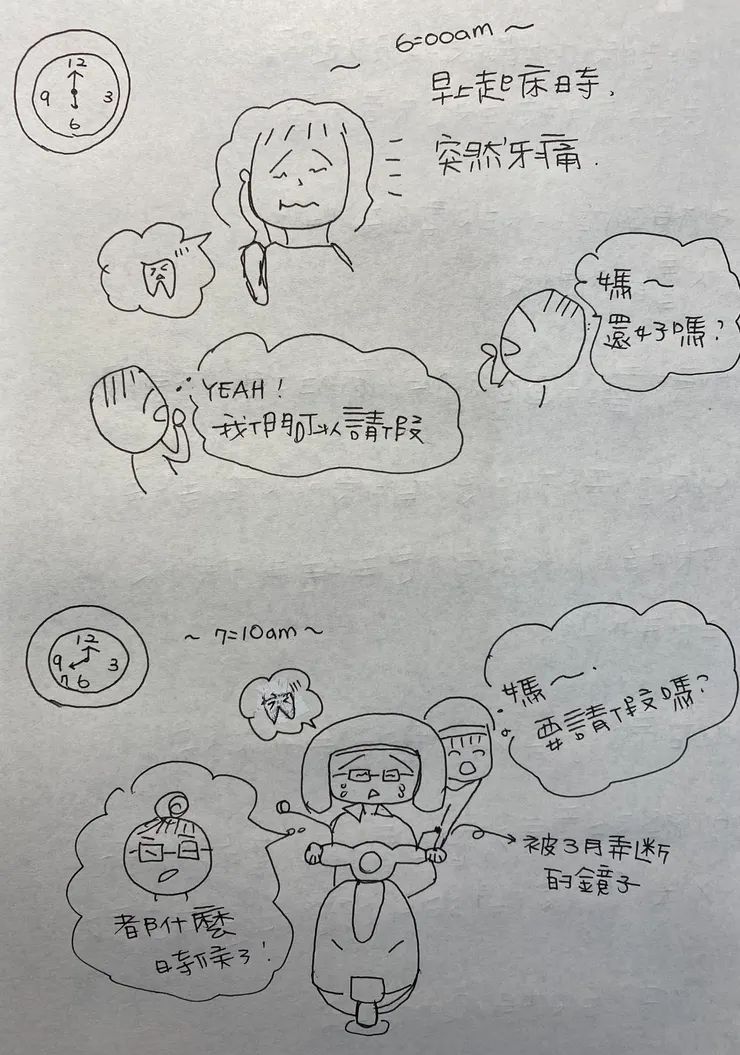 12
9 3
6
~ 6:00am ~
早上起床時,
突然牙痛.
媽~
還好嗎?
YEAH!
我們可以請假
12
9 3
7 6
~ 7:10am ~
媽~.
要請假嗎?
被3月弄斷
的鏡子
都什麼
時候了!